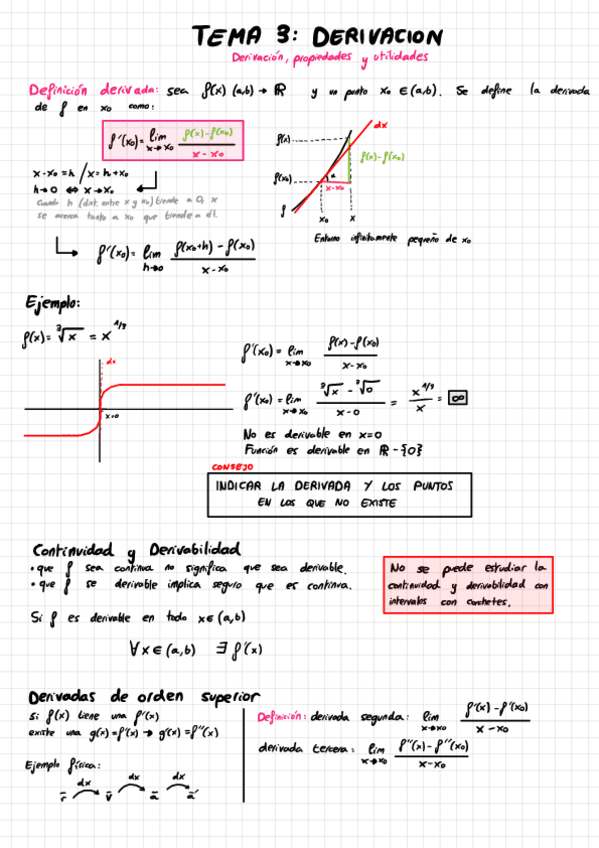 TEMA 3: DERIVACION
Derivación, propiedades y utilidades
Definición derivada: sea f(x) (a,b) → ℝ y un punto x₀ ∈ (a,b). Se define la derivada
de f en x₀ como:
f'(x₀) = lim x→x₀ (f(x) - f(x₀)) / (x - x₀)
x - x₀ = h / x = h + x₀
h→0 ⇔ x→x₀
Cuando h (dist. entre x y x₀) tiende a 0, x
se acerca tanto a x₀ que tiende a él.
f'(x₀) = lim h→0 (f(x₀+h) - f(x₀)) / (x - x₀)
dx
f(x)
f(x) - f(x₀)
f(x₀)
α
x - x₀
f
x₀ x
Entorno infinitamente pequeño de x₀
Ejemplo:
f(x) = ∛x = x^1/3
dx
x=0
f'(x₀) = lim x→x₀ (f(x) - f(x₀)) / (x - x₀)
f'(x₀) = lim x→x₀ (∛x - ∛0) / (x - 0) = x^1/3 / x = ∞
No es derivable en x=0
Función es derivable en ℝ - {0}
CONSEJO
INDICAR LA DERIVADA Y LOS PUNTOS
EN LOS QUE NO EXISTE
Continuidad y Derivabilidad
• que f sea continua no significa que sea derivable.
• que f se derivable implica seguro que es continua.
Si f es derivable en todo x ∈ (a,b)
∀ x ∈ (a,b) ∃ f'(x)
No se puede estudiar la
continuidad y derivabilidad con
intervalos con corchetes.
Derivadas de orden superior
si f(x) tiene una f'(x)
existe una g(x) = f'(x) → g'(x) = f''(x)
Ejemplo física:
dx dx dx
r̄ v̄ ā ā'
Definición: derivada segunda: lim x→x₀ (f'(x) - f'(x₀)) / (x - x₀)
derivada tercera: lim x→x₀ (f''(x) - f''(x₀)) / (x - x₀)